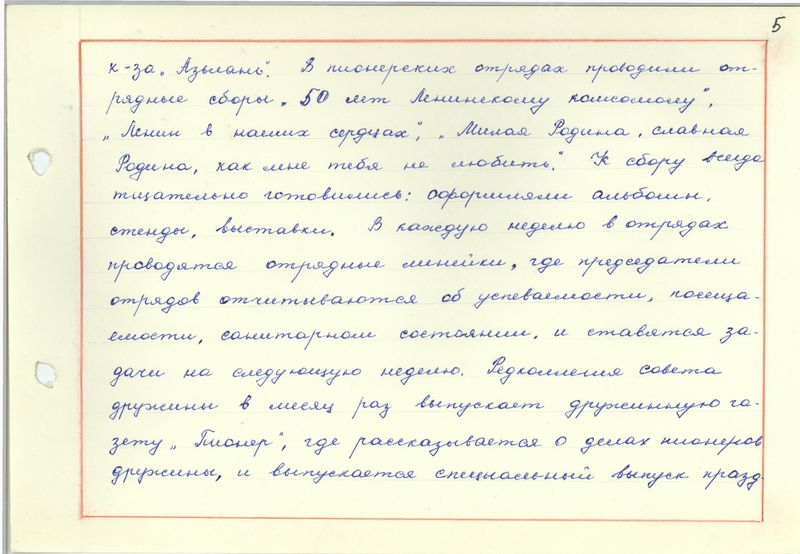 5
к-за „Азьлань". В пионерских отрядах проводили от-
рядные сборы „50 лет Ленинскому комсомолу",
„Ленин в наших сердцах", „Милая Родина, славная
Родина, как мне тебя не любить." К сбору всегда
тщательно готовились: оформляли альбомы,
стенды, выставки. В каждую неделю в отрядах
проводятся отрядные линейки, где председатели
отрядов отчитываются об успеваемости, посеща-
емости, санитарном состоянии, и ставятся за-
дачи на следующую неделю. Редколлегия совета
дружины в месяц раз выпускает дружинную га-
зету „Пионер", где рассказывается о делах пионеров
дружины, и выпускается специальный выпуск празд-